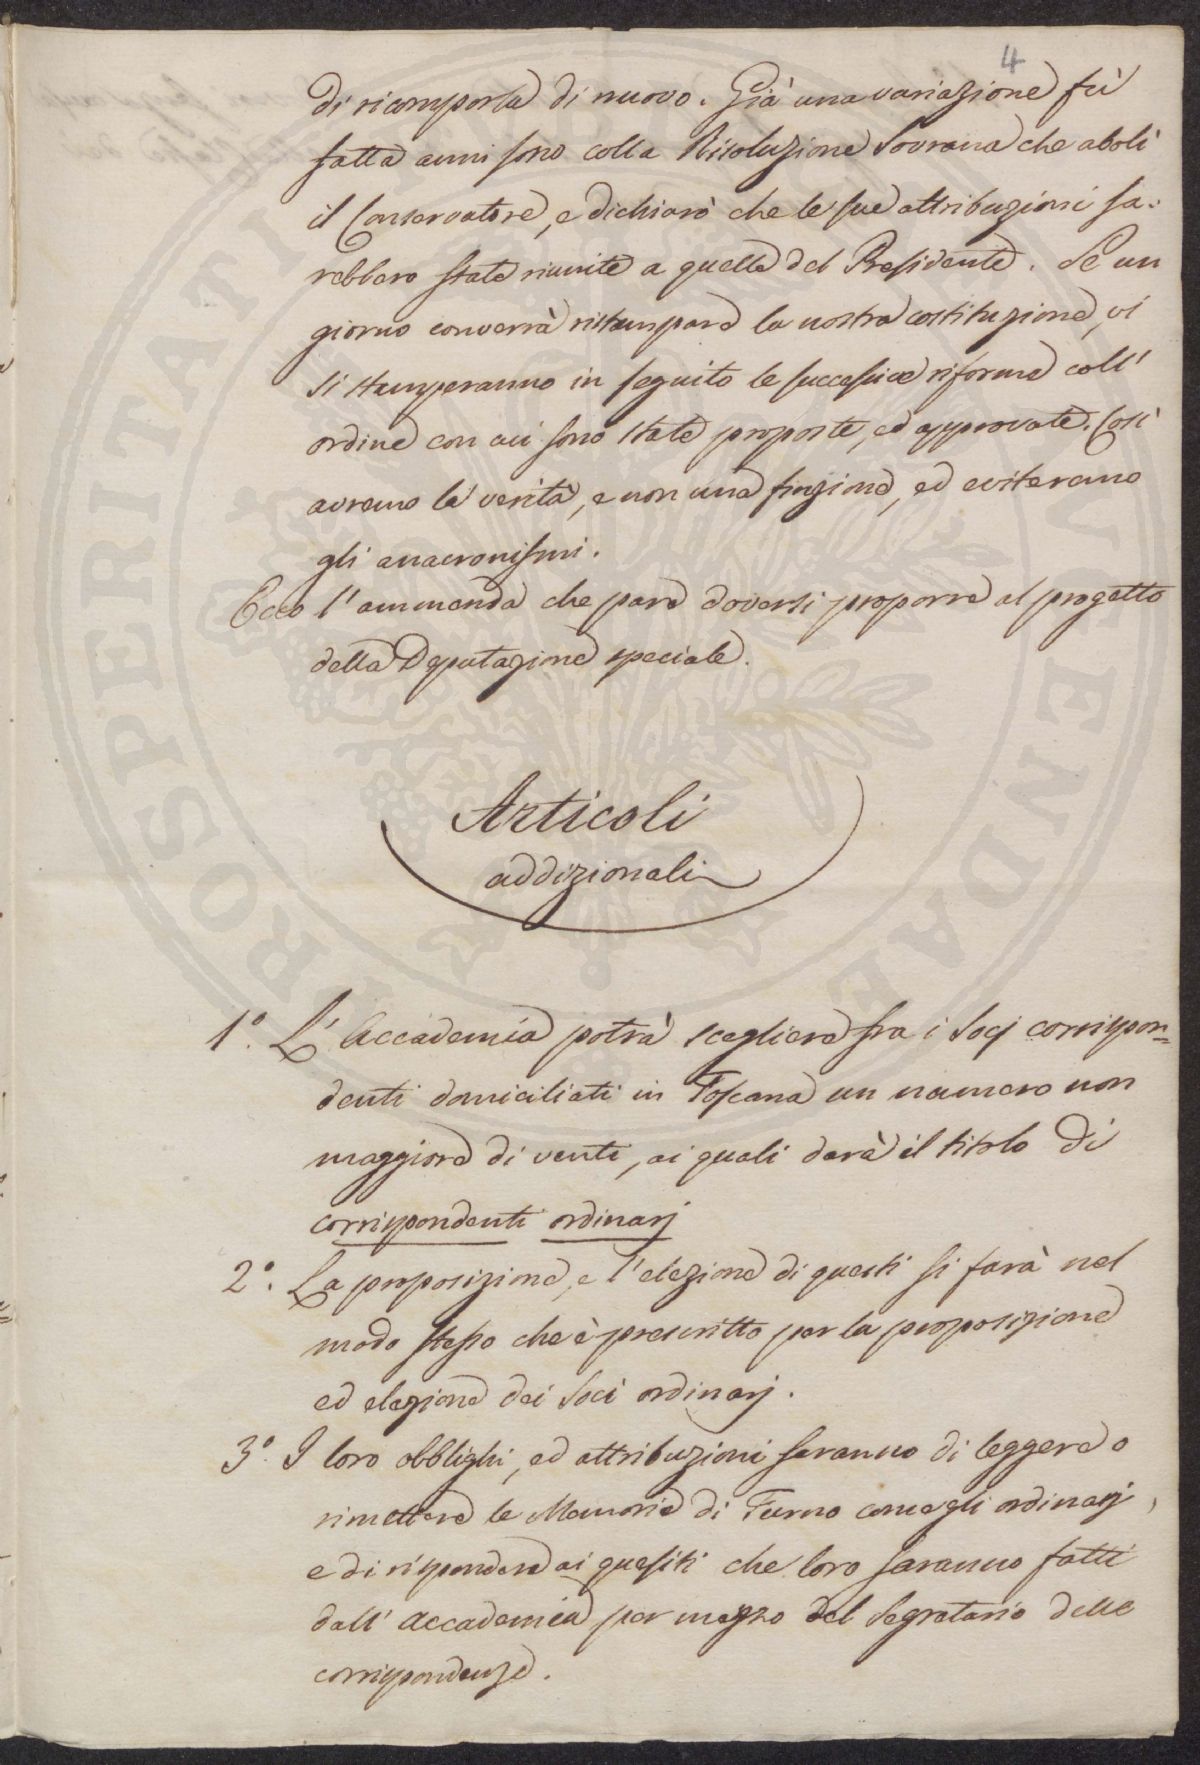 4
di ricomporla di nuovo. Già una variazione fù
fatta anni sono colla Risoluzione Sovrana che abolì
il Conservatore, e dichiarò che le sue attribuzioni sa-
rebbero state riunite a quelle del Presidente. Se un
giorno converrà ristampare la nostra costituzione, vi
si stamperanno in seguito le successive riforme coll'
ordine con cui sono state proposte, ed approvate. Così
avremo la verità, e non una finzione, ed eviteremo
gli anacronismi.
Ecco l'ammenda che pare doversi proporre al progetto
della Deputazione speciale.
Articoli
addizionali
1.° L'Accademia potrà scegliere fra i Socj corrispon=
denti domiciliati in Toscana un numero non
maggiore di venti, ai quali darà il titolo di
corrispondenti ordinarj
2.° La proposizione, e l'elezione di questi si farà nel
modo stesso che è prescritto per la proposizione
ed elezione dei Soci ordinarj.
3.° I loro obblighi, ed attribuzioni saranno di leggere o
rimettere le Memorie di Turno come gli ordinarj,
e di rispondere ai quesiti che loro saranno fatti
dall'Accademia per mezzo del Segretario delle
corrispondenze.
PROSPERITATI PUBLICAE AUGENDAE